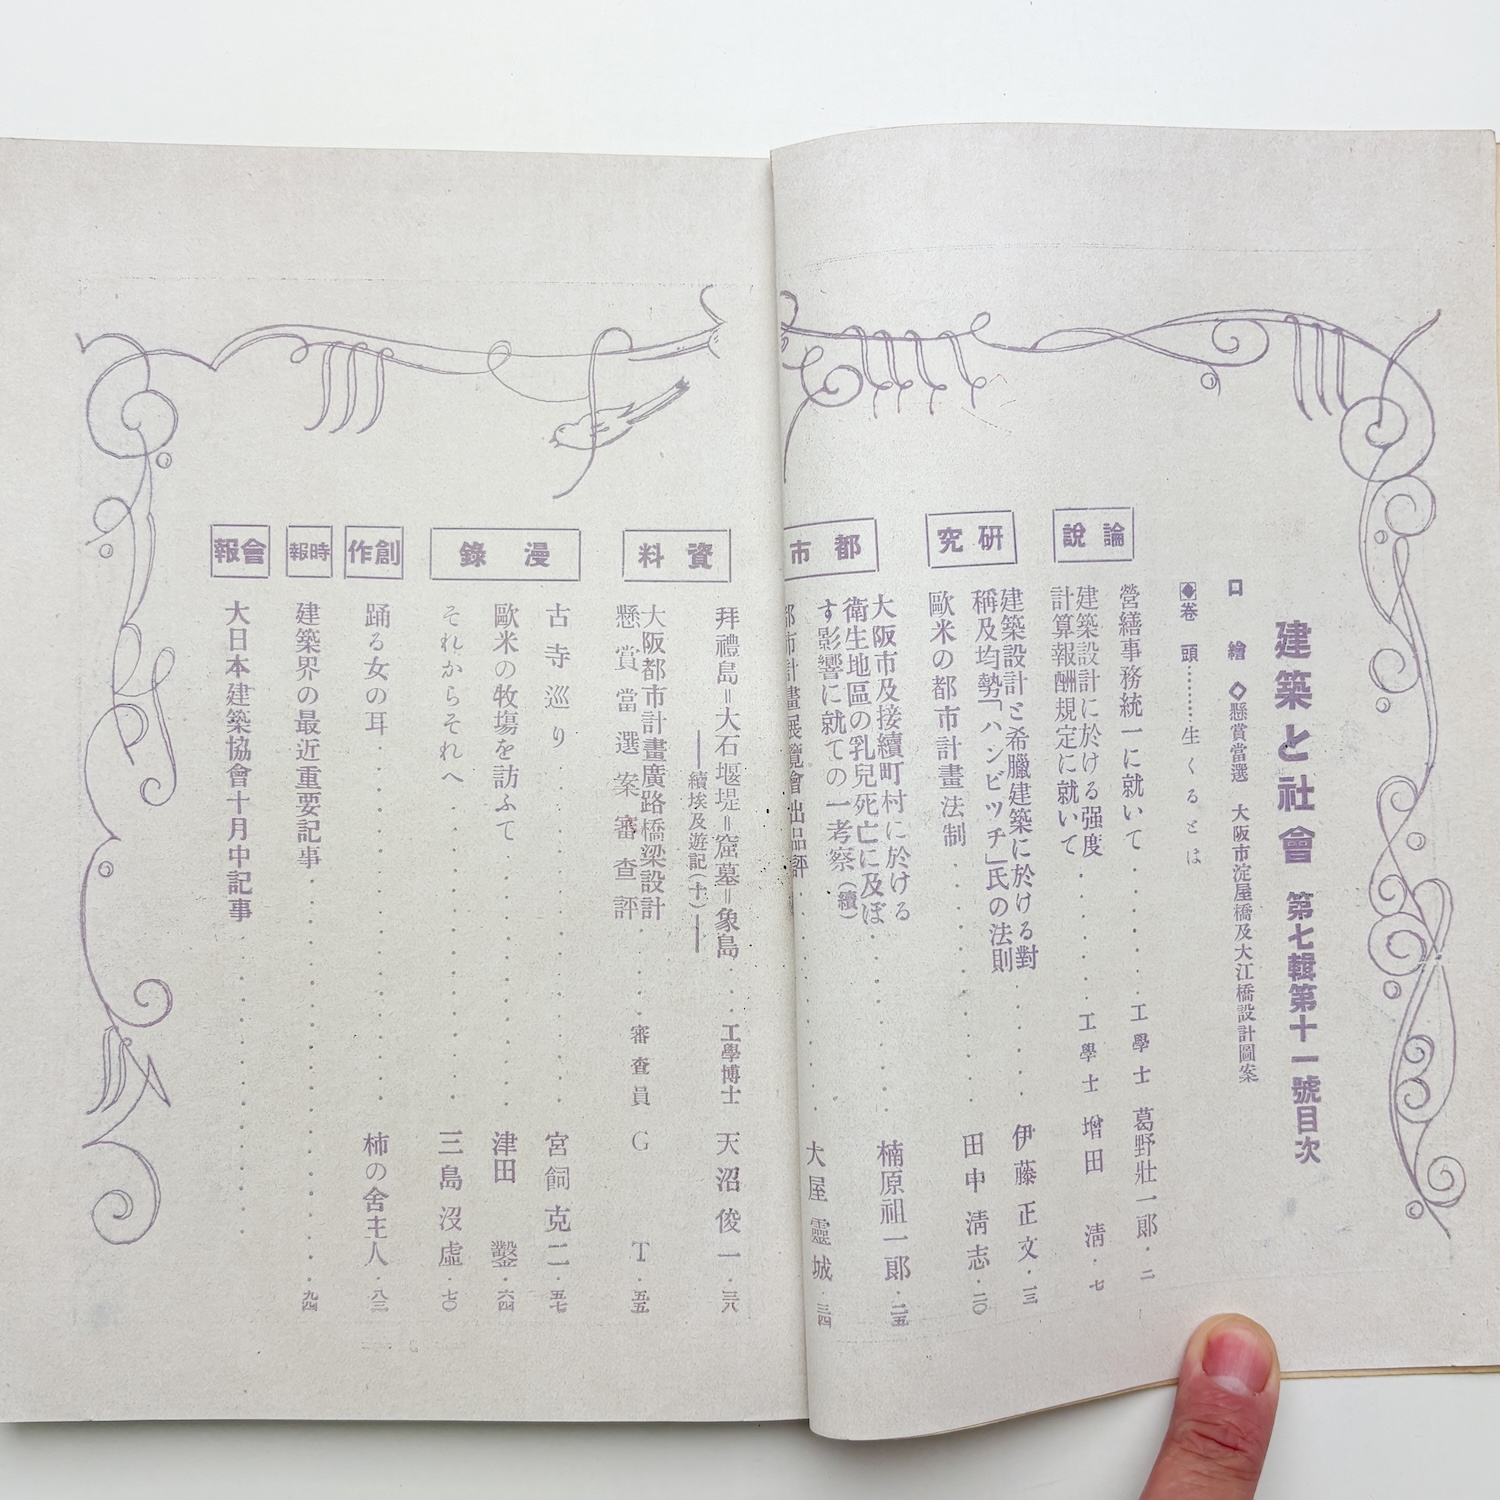 建築と社會 第七輯第十一號目次
口繪 ◇懸賞當選 大阪市淀屋橋及大江橋設計圖案
卷頭………生くるとは
論說
營繕事務統一に就いて・・・・・工學士 葛野壯一郞・二
建築設計に於ける强度
計算報酬規定に就いて・・・・・工學士 增田淸・七
硏究
建築設計と希臘建築に於ける對
稱及均勢「ハンビッヂ」氏の法則・・・・伊藤正文・一三
歐米の都市計畫法制・・・・・・田中淸志・二〇
都市
大阪市及接續町村に於ける
衞生地區の乳兒死亡に及ぼ
す影響に就ての一考察(續)・・・・・楠原祖一郞・二五
都市計畫展覽會出品評・・・・・・大屋靈城・三四
資料
拜禮島=大石堰堤=窟墓=象島・・工學博士 天沼俊一・三八
──續埃及遊記(十)──
大阪都市計畫廣路橋梁設計
懸賞當選案審査評・・・審査員 G T・五五
漫錄
古寺巡り・・・・・・・・宮飼克二・五七
歐米の牧塲を訪ふて・・・・・・・津田鑿・六四
それからそれへ・・・・・・・・三島沒虛・七〇
創作
踊る女の耳・・・・・・・・柿の舍主人・八三
時報
建築界の最近重要記事・・・・・・・・九四
會報
大日本建築協會十月中記事・・・・・・・